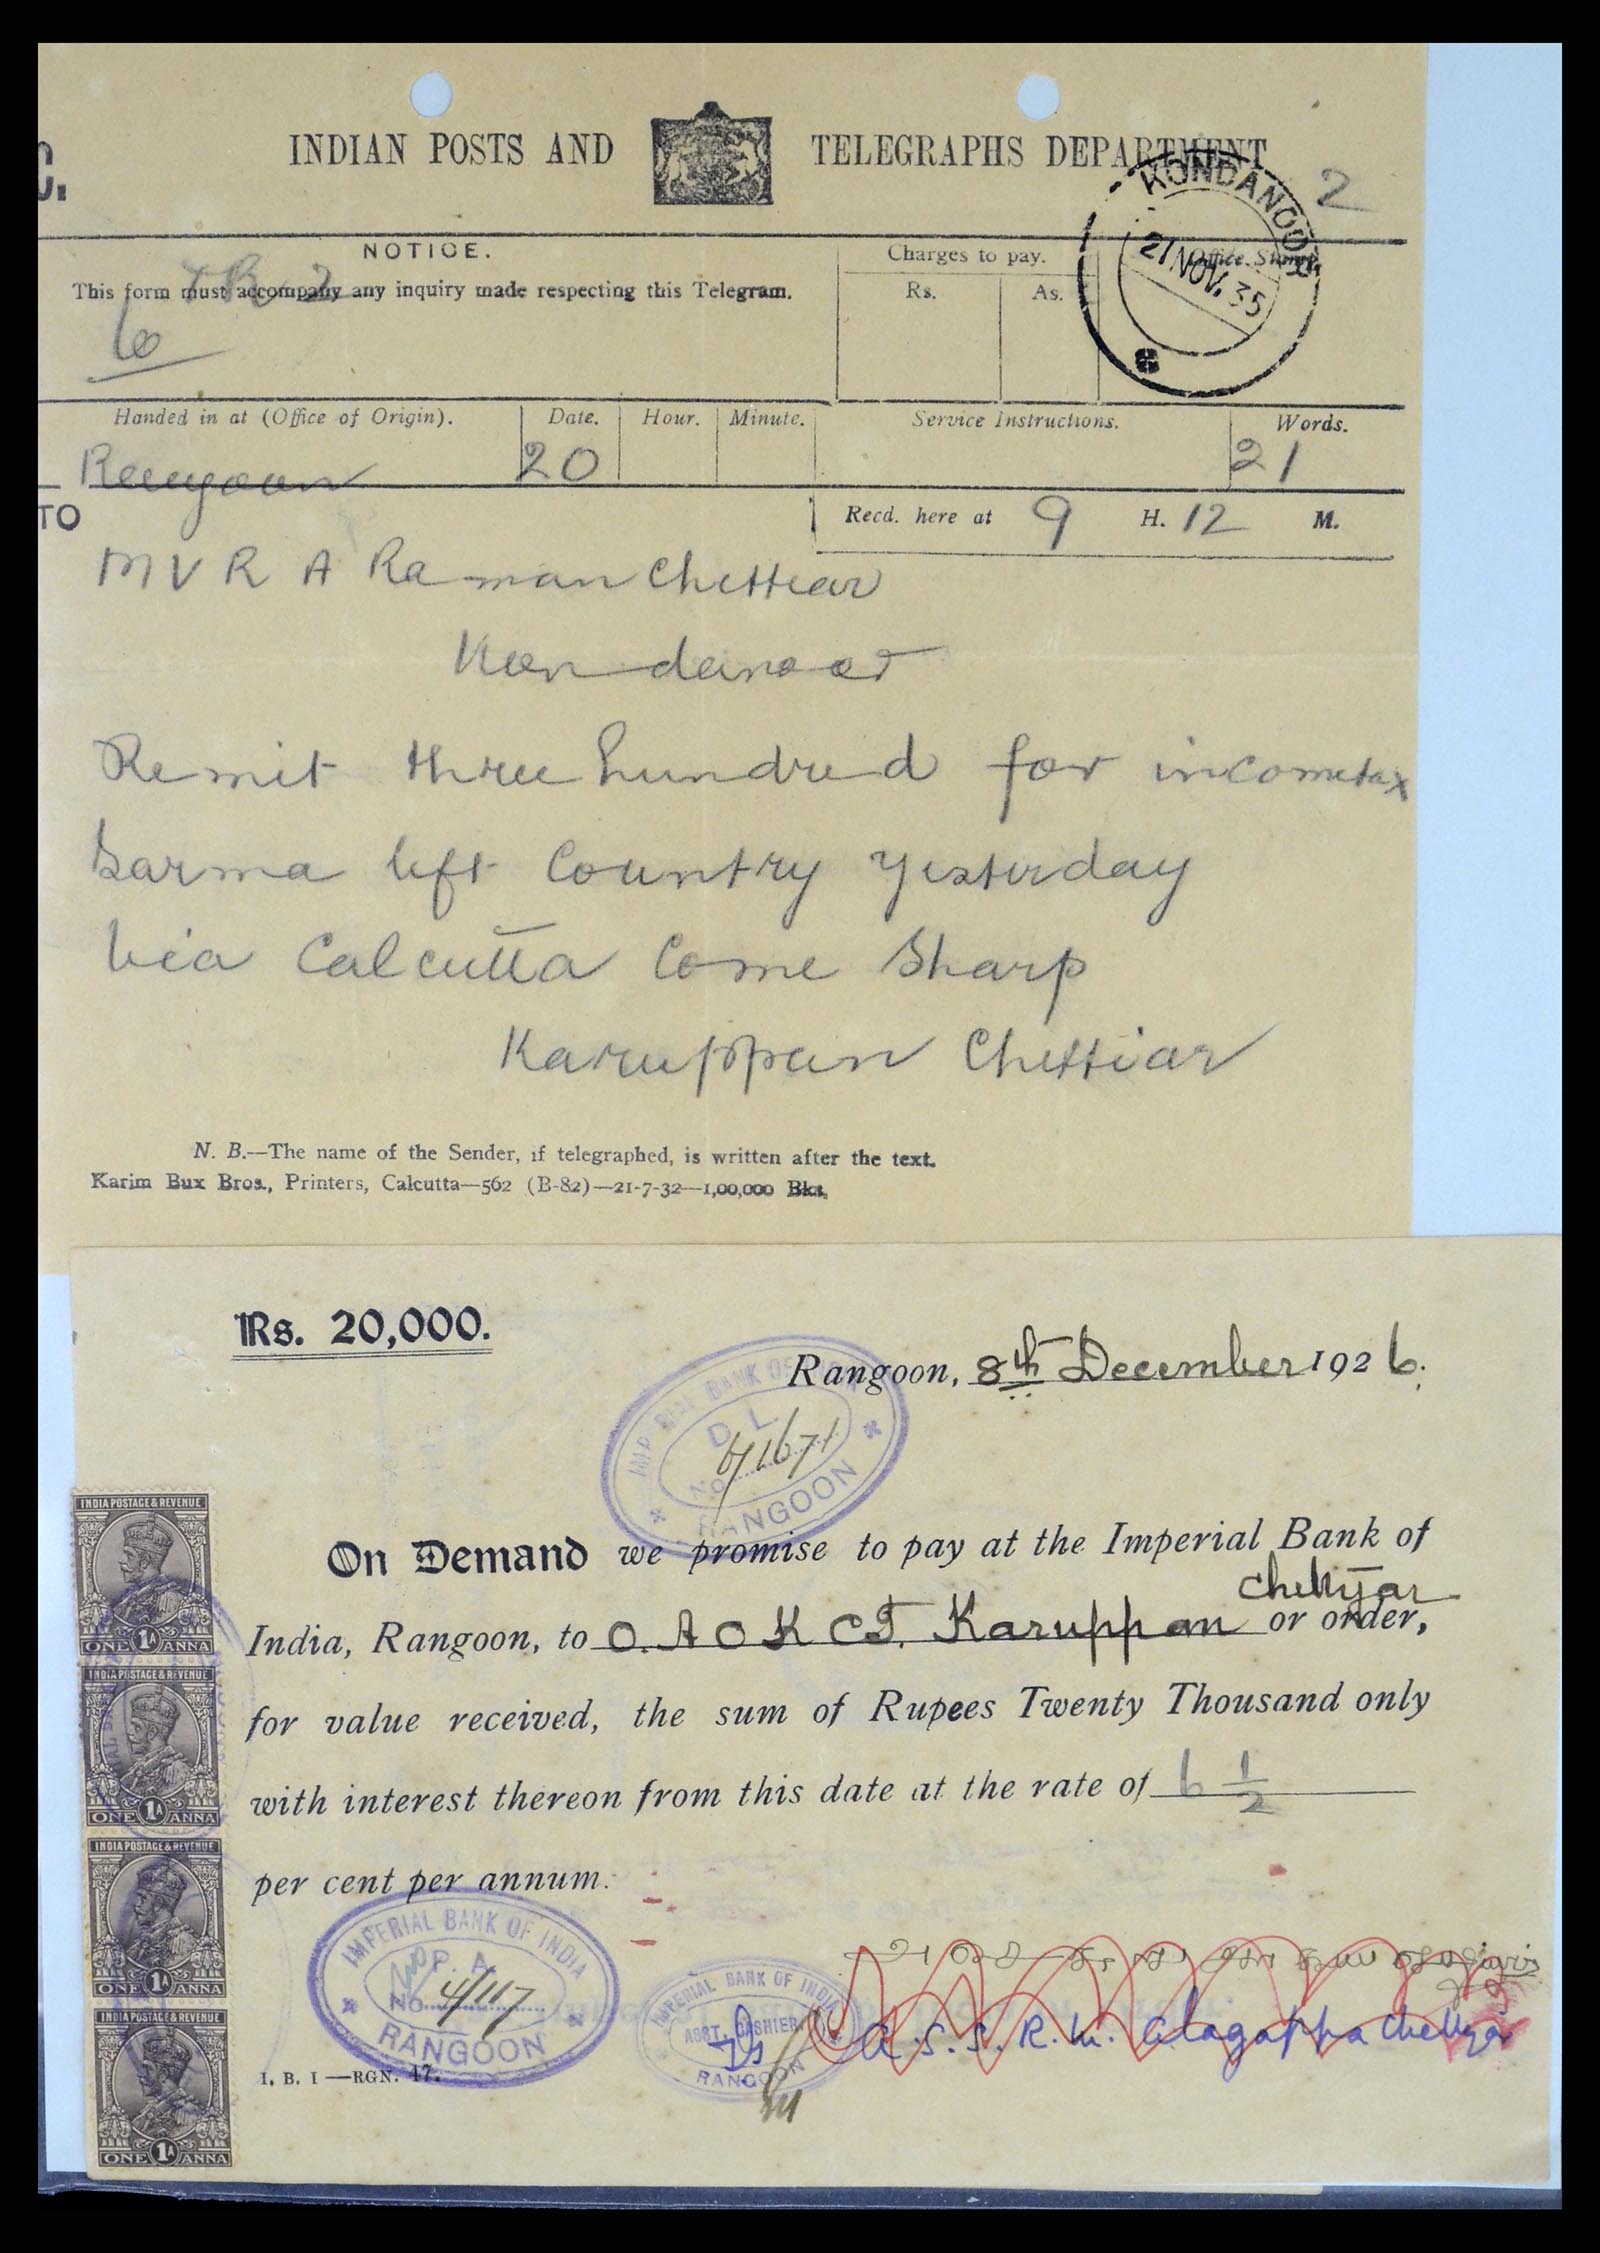 INDIAN POSTS AND TELEGRAPHS DEPARTMENT
2
KONDANOOR
21 NOV. 35
NOTICE.
This form must accompany any inquiry made respecting this Telegram.
Charges to pay.
Rs. As.
Office Stamp.
Handed in at (Office of Origin). Date. Hour. Minute. Service Instructions. Words.
Rangoon 20 21
TO
Recd. here at 9 H. 12 M.
M V R A Raman Chettiar
Kondanoor
Remit three hundred for incometax
Sarma left Country yesterday
via Calcutta Come Sharp
Karuppan Chettiar
N. B.—The name of the Sender, if telegraphed, is written after the text.
Karim Bux Bros., Printers, Calcutta—562 (B-82)—21-7-32—1,00,000 Bks.
Rs. 20,000.
Rangoon, 8th December 1926.
IMPERIAL BANK OF
D. L.
No. 6/1671
RANGOON
On Demand we promise to pay at the Imperial Bank of
Chettyar
India, Rangoon, to O. A O K CT. Karuppan or order,
for value received, the sum of Rupees Twenty Thousand only
with interest thereon from this date at the rate of 6 1/2
per cent per annum.
IMPERIAL BANK OF INDIA
P. A.
No. 4/117
RANGOON
IMPERIAL BANK OF INDIA
ASST. CASHIER
RANGOON
A. S. S. R. M. Alagappa Chettyar
I. B. I—RGN. 47.
INDIA POSTAGE & REVENUE
ONE 1A ANNA
INDIA POSTAGE & REVENUE
ONE 1A ANNA
INDIA POSTAGE & REVENUE
ONE 1A ANNA
INDIA POSTAGE & REVENUE
ONE 1A ANNA